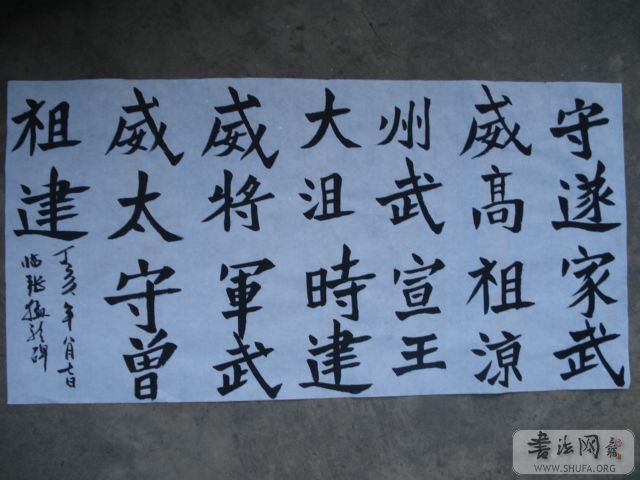 守遂家武
威高祖涼
州武宣王
大沮時建
威将軍武
威太守曾
祖建
丁亥年八月七日
临张猛龙碑
書法网
WWW.SHUFA.ORG